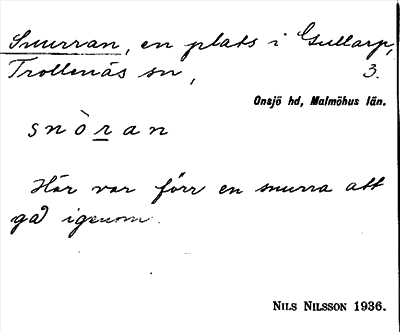 Snurran, en plats i Gullarp,
Trollenäs sn, 3.
Onsjö hd, Malmöhus län.
snòran
Här var förr en snurra att
gå igenom.
NILS NILSSON 1936.